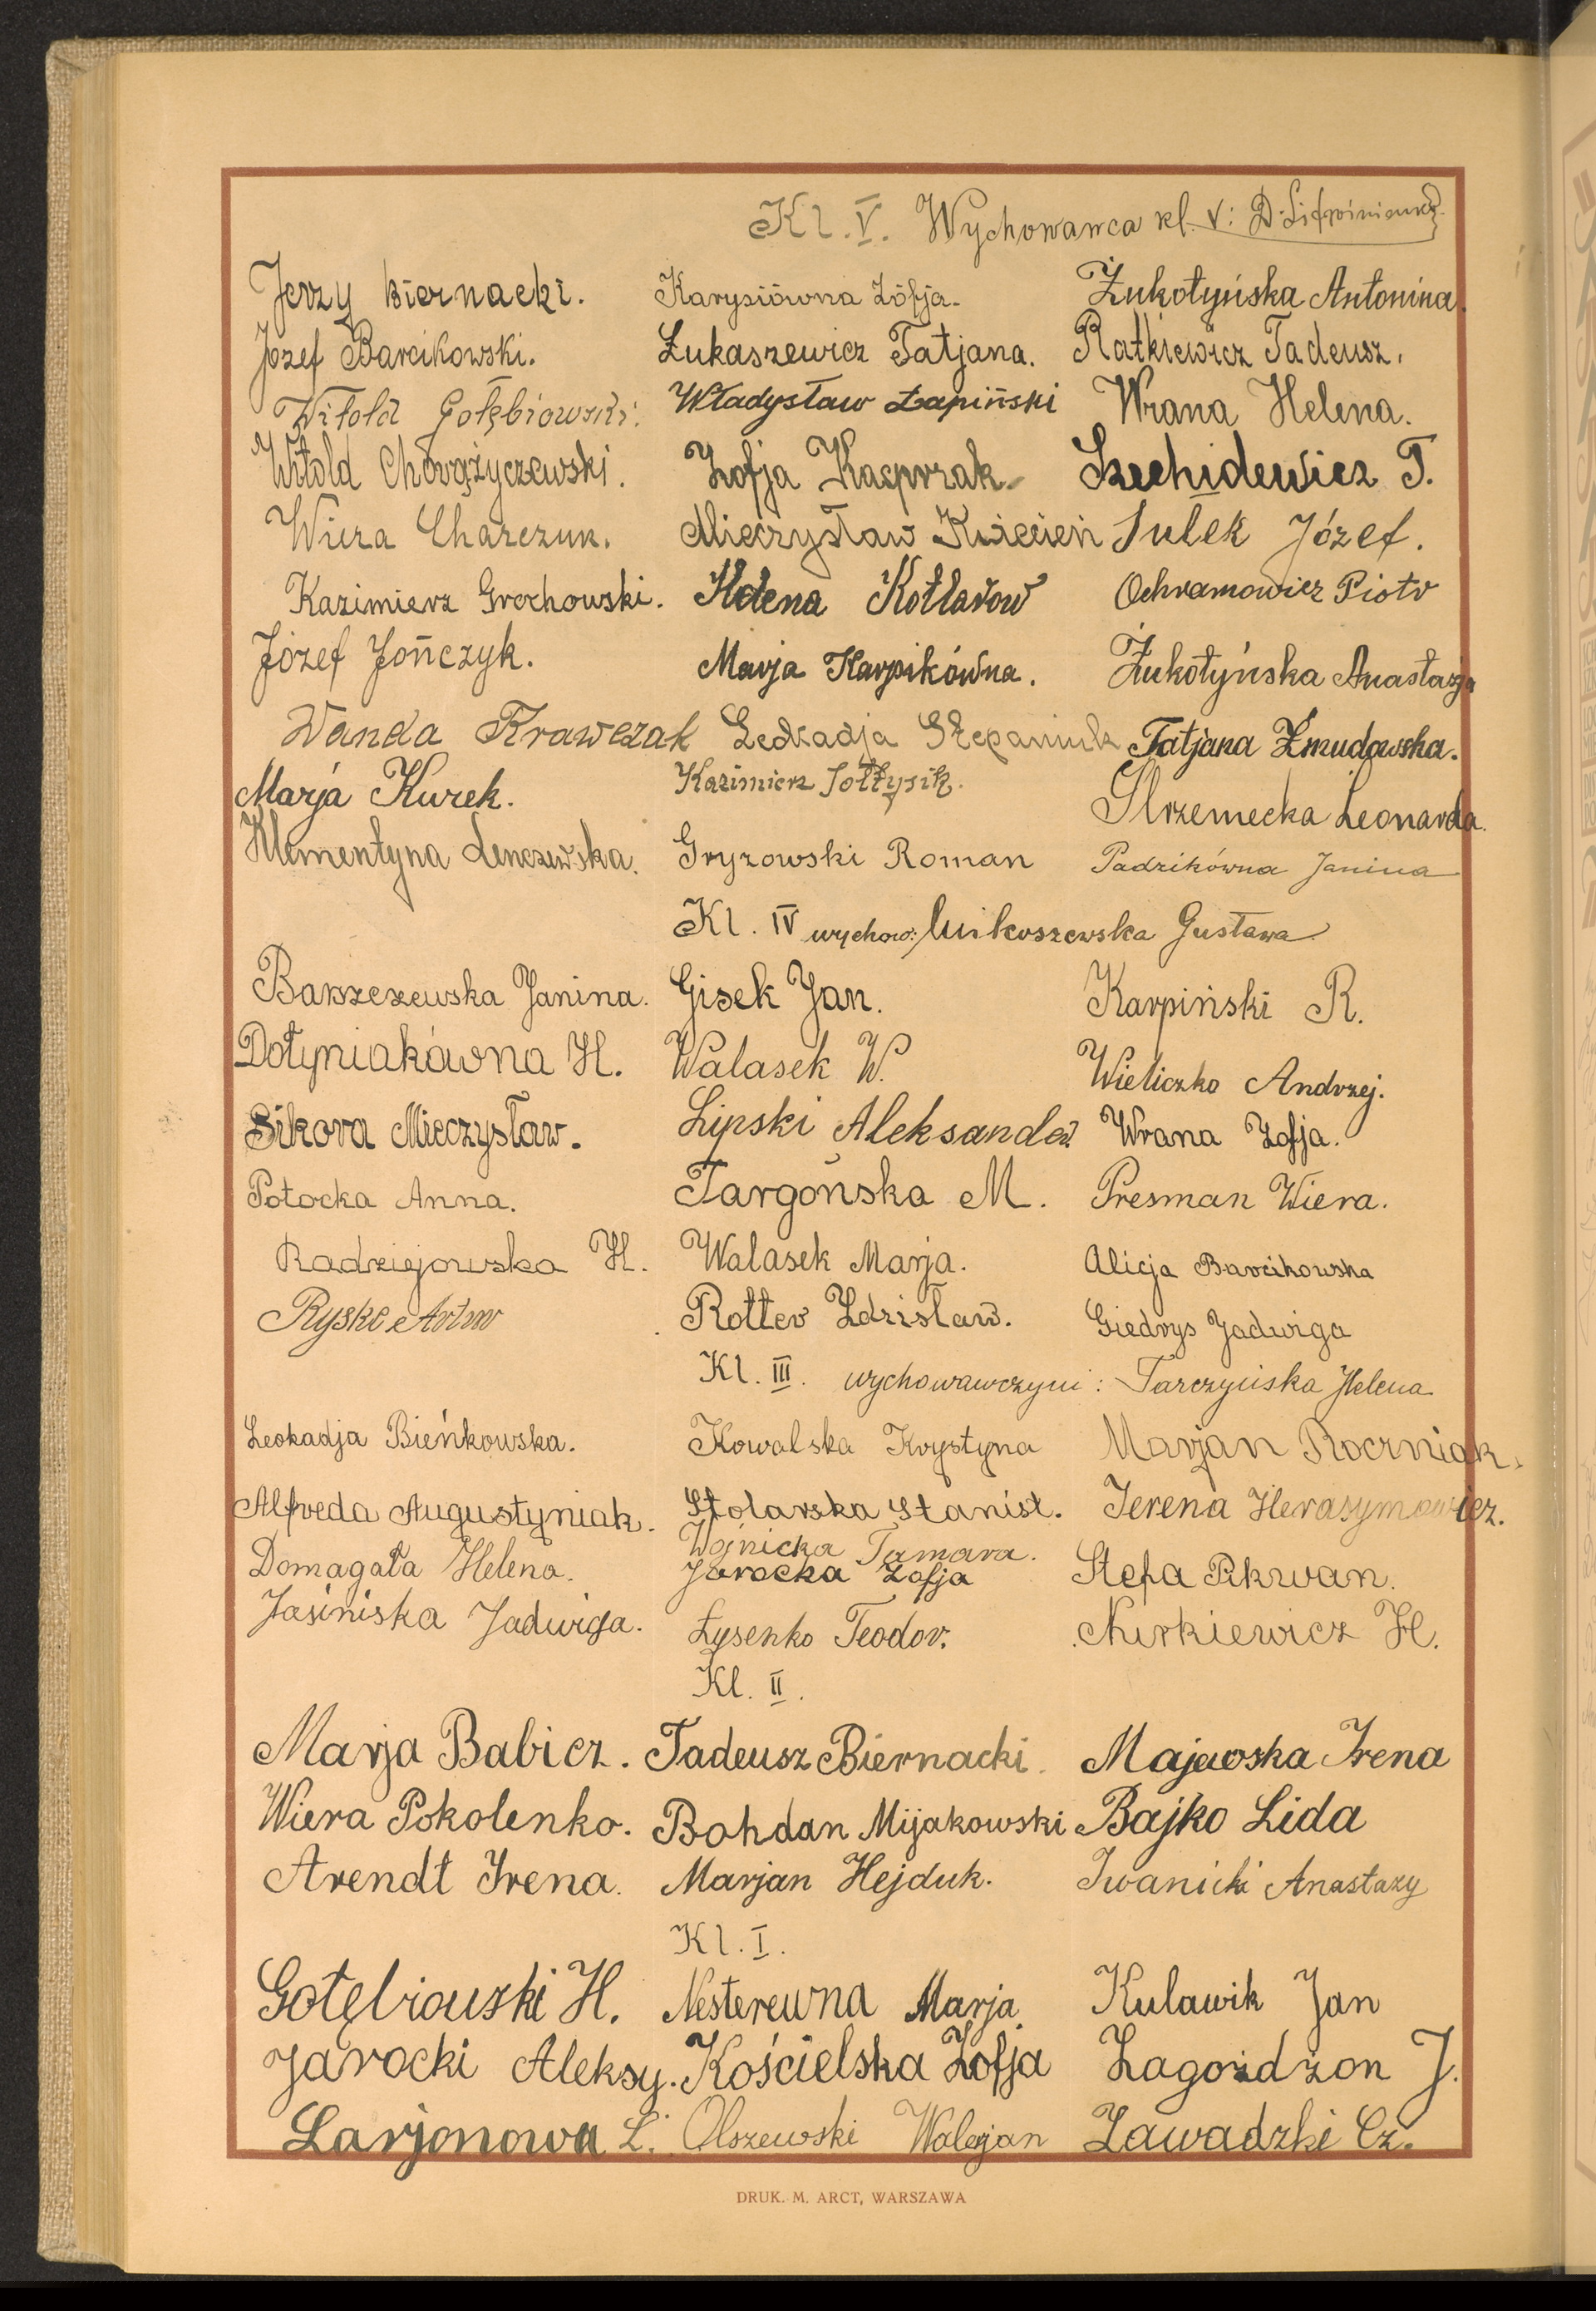 Kl. V. Wychowawca kl. V: D. Litwinienko
Jerzy Biernacki. Karysiówna Zofja. Żukotyńska Antonina.
Józef Barcikowski. Łukaszewicz Tatjana. Ratkiewicz Tadeusz.
Witold Gołębiowski. Władysław Łapiński Wrana Helena.
Witold Chorążyczewski. Zofja Kacprzak. Szechidewicz T.
Wiera Charczuk. Mieczysław Kwiecień Sulek Józef.
Kazimierz Grochowski. Helena Kotlarow Ochramowicz Piotr
Józef Jończyk. Marja Karpikówna. Żukotyńska Anastazja
Wanda Krawczak Leokadja Szepaniuk Tatjana Żmudowska.
Marja Kurek. Kazimierz Sołtysik. Strzemecka Leonarda.
Klementyna Lenczewska. Gryzowski Roman Padzikówna Janina
Kl. IV wychow: Mikoszewska Gustawa
Barszczewska Janina. Gisek Jan. Karpiński R.
Dołyniakówna H. Walasek W. Wieliczko Andrzej.
Sikora Mieczysław. Lipski Aleksander Wrana Zofja.
Potocka Anna. Targońska M. Presman Wiera.
Radziejowska H. Walasek Marja. Alicja Barcikowska
Ryske Artur Rotter Zdzisław. Giedrys Jadwiga
Kl. III. wychowawczyni: Tarczyńska Helena
Leokadja Bieńkowska. Kowalska Krystyna Marjan Roczniak.
Alfreda Augustyniak. Stolarska Stanisł. Jerena Herasymowicz.
Domagała Helena. Wójnicka Tamara. Stefa Pikwan.
Jarocka Zofja
Jasińiska Jadwiga. Łysenko Teodor. Nurkiewicz H.
Kl. II.
Marja Babicz. Tadeusz Biernacki. Majewska Irena
Wiera Pokolenko. Bohdan Mijakowski Bajko Lida
Arendt Irena. Marjan Hejduk. Iwanicki Anastazy
Kl. I.
Gołębiowski H. Nesterewna Marja. Kulawik Jan
Jarocki Aleksy. Kościelska Zofja Łagożdżon J.
Larjonowa L. Olszewski Walerjan Zawadzki Cz.
DRUK. M. ARCT, WARSZAWA